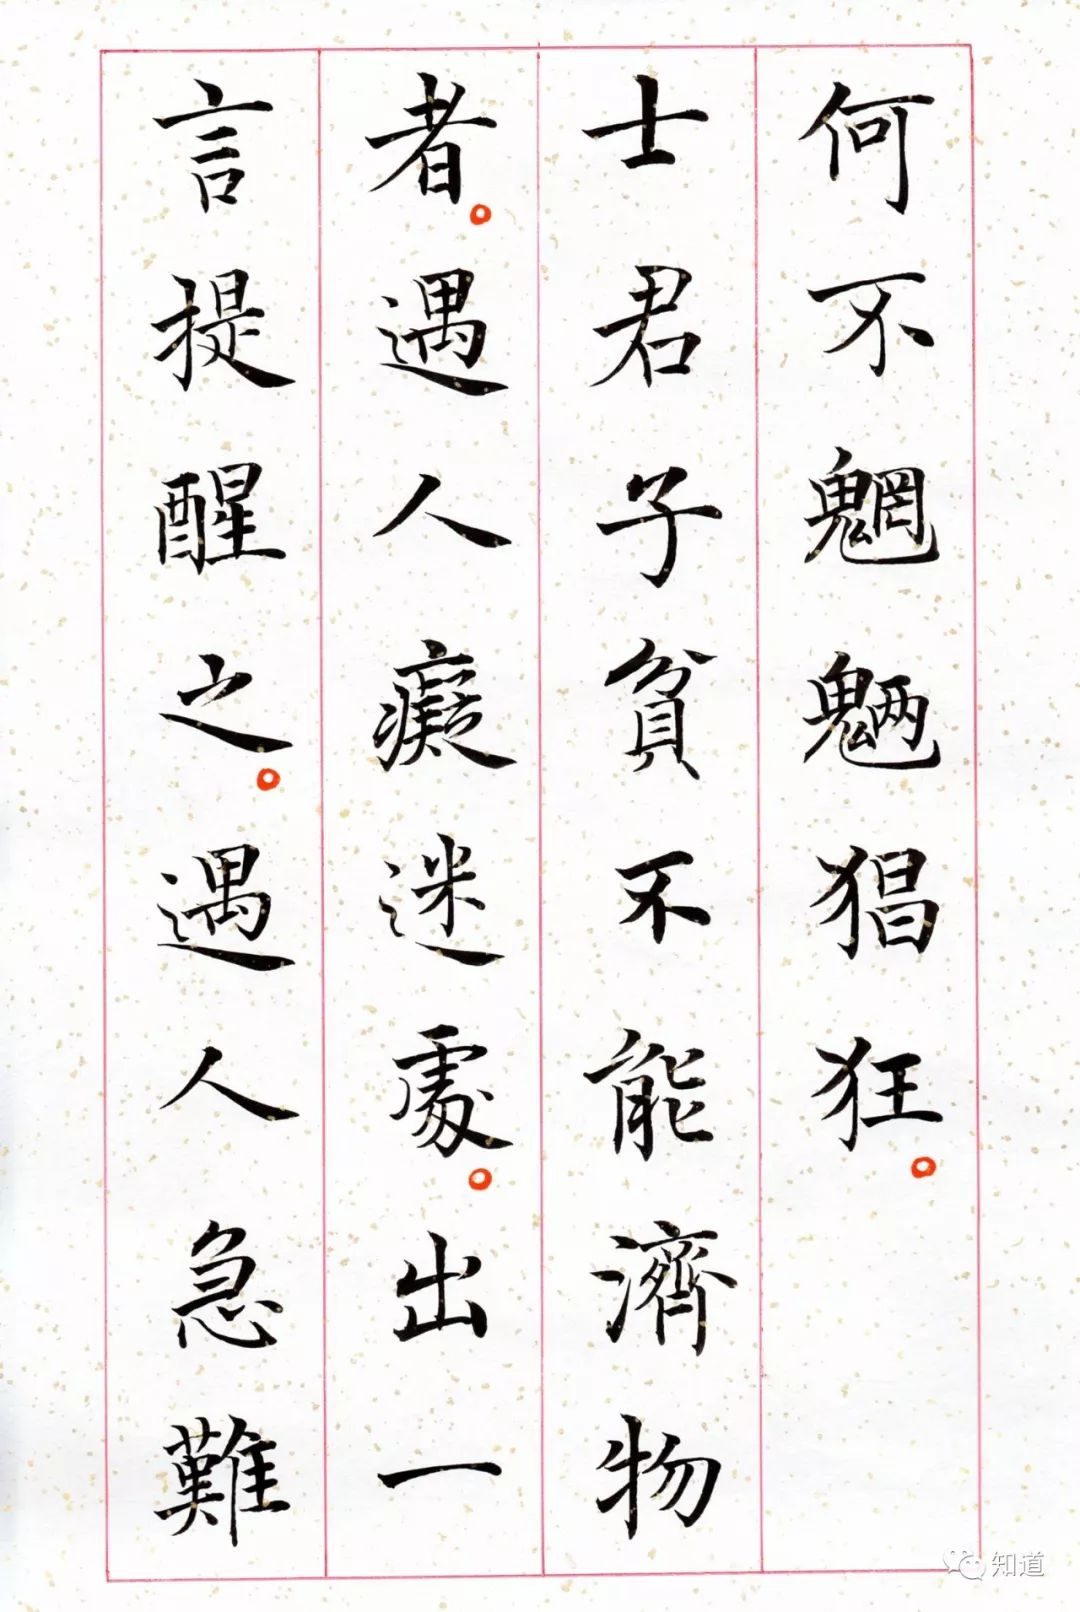 何不魍魎猖狂。
士君子貧不能濟物
者。遇人癡迷處。出一
言提醒之。遇人急難
知道